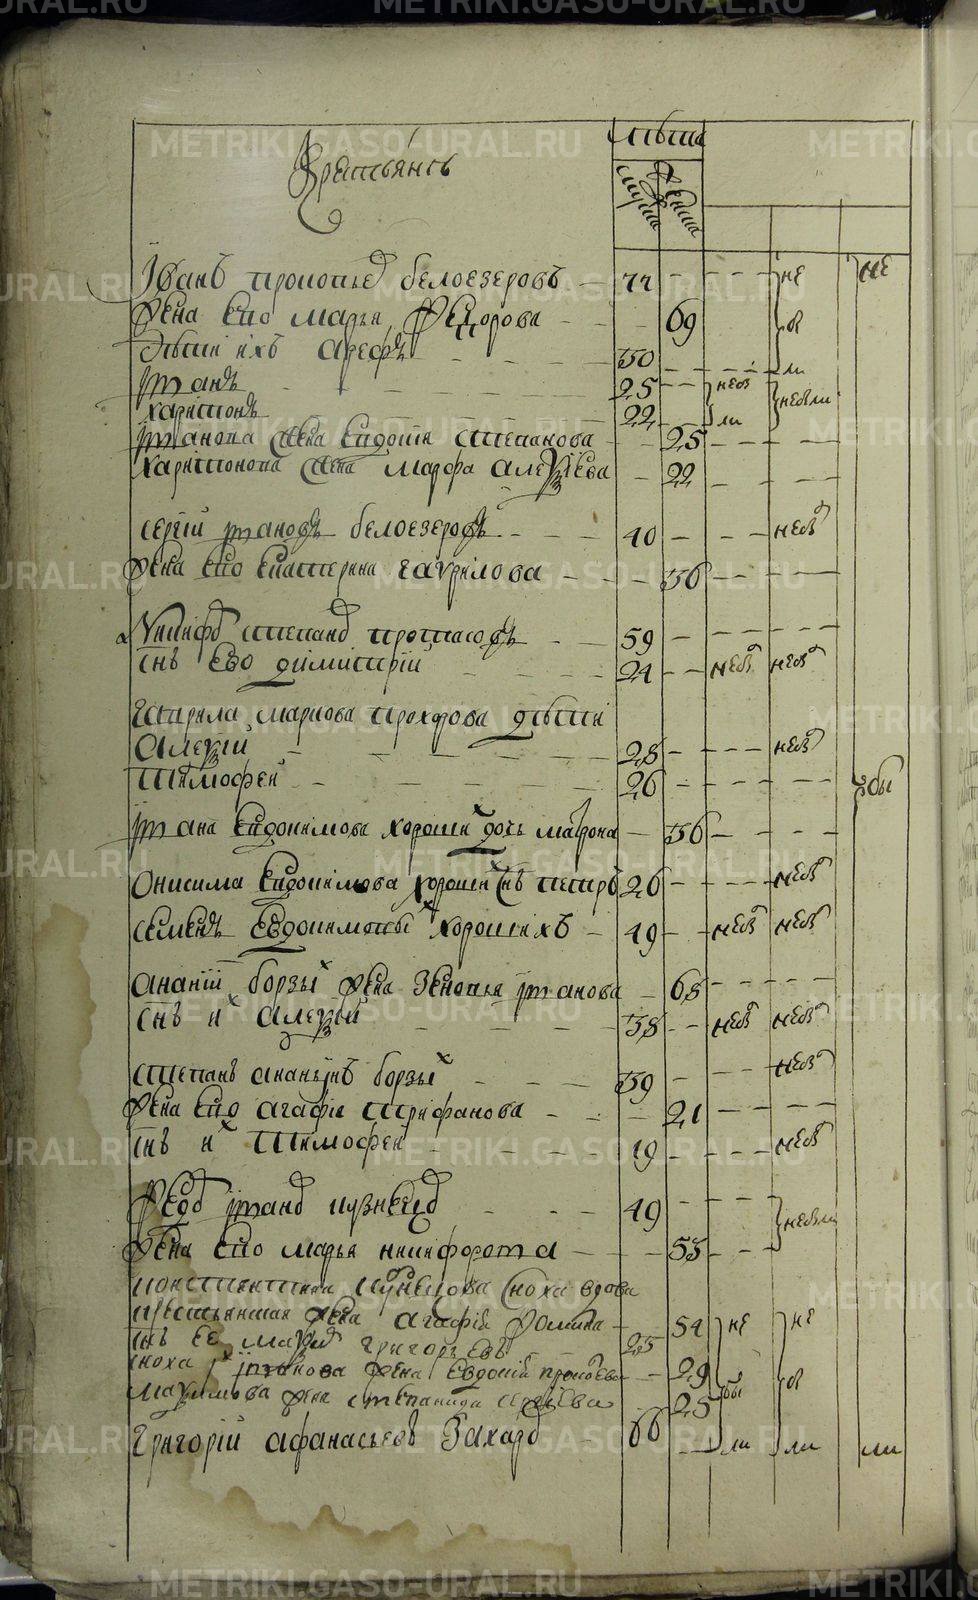 METRIKI.GASO-URAL.RU
Крестьянѣ
лѣта
мужеска
женска
Іванъ прокопьевъ белоезеровъ 72 не не
Жена ево марья Ѳедорова 69 ов
Дѣти ихъ арефъ 30 ли
іванъ 25 небы небыли
харитонъ 22 ли
іванова жена евдокия степанова 25
харитонова жена марфа алеѯѣева 22
сергій івановъ белоезеровъ 40 небы
Жена ево екатерина гаврилова 36
Никифоръ степановъ протасовъ 59
снъ его димитрій 24 небы небы
гаврила маркова прохорова дѣти
алеѯій 28 небы
тимофей 26 бы
івана евдокимова хороших дочь матрона 36
Онисима евдокимова хороших снъ петръ 26 небы
семенъ евдокимовъ хорошихъ 49 небы небы
ананій борзых жена зеновья іванова 68
снъ их алеѯѣй 38 небы небы
степанъ ананьинъ борзых 39 небы
Жена ево агафия трифанова 21
снъ их тимофей 19 небы
Ѳедоръ івановъ кузнецовъ 49 небыли
Жена ево марья никифорова 53
константина кузнецова сноха вдова
крестьянская жена агафія Ѳомина 54 не не
снъ ее маѯимъ григорьевъ 25
сноха іванова жена евдокия прокопьева 29 ов
маѯимова жена степанида 25 бы
Григорій афанасьевъ захаровъ 66 ли ли ли